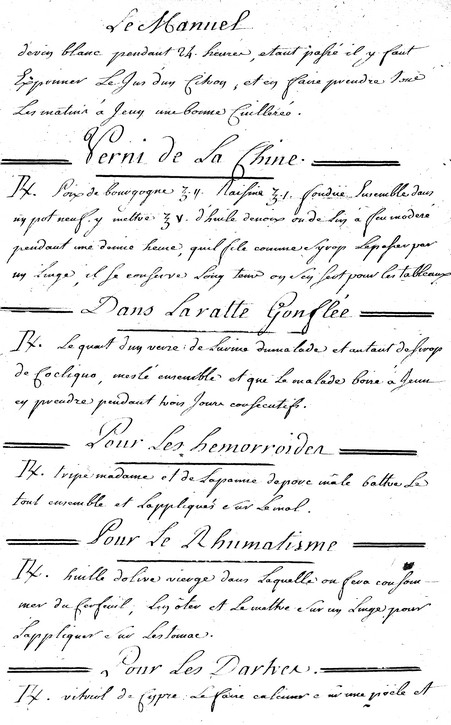 Le Manuel
de vin blanc pendant 24 heures, etant passé il y faut
Exprimer Le Jus d'un Citron, et en faire prendre tous
Les matins à Jeun une bonne Cuilleréé.
Verni de La Chine.
Rx. Poix de bourgogne ʒ. ij. Raisine ʒ. i. fondue Ensemble dans
un pot neuf. y mettre ʒ v. d'huile de noix ou de Lin a feu moderé
pendant une demie heure, quil file comme Syrop Le passer par
un Linge, il se conserve Long tems on s'en sert pour les tableaux
Dans La ratte Gonfléé
Rx. Le quart d'un verre de Lurine du malade et autant de sirop
de Cocliquo, meslé ensemble et que Le malade boive à Jeun
en prendre pendant trois Jours consecutifs.
Pour Les hemorroides
Rx. tripe madame et de La panne de porc mâle battre Le
tout ensemble et L'appliqués sur Le mal.
Pour Le Rhumatisme
Rx. huille dolive vierge dans Laquelle on fera consom-
mer du Cerfeuil, Lin ôter et Le mettre sur un Linge pour
L'appliquer sur Lestomac.
Pour Les Dartres.
Rx. vitriol de Cypre Le faire calciner sur une poële et